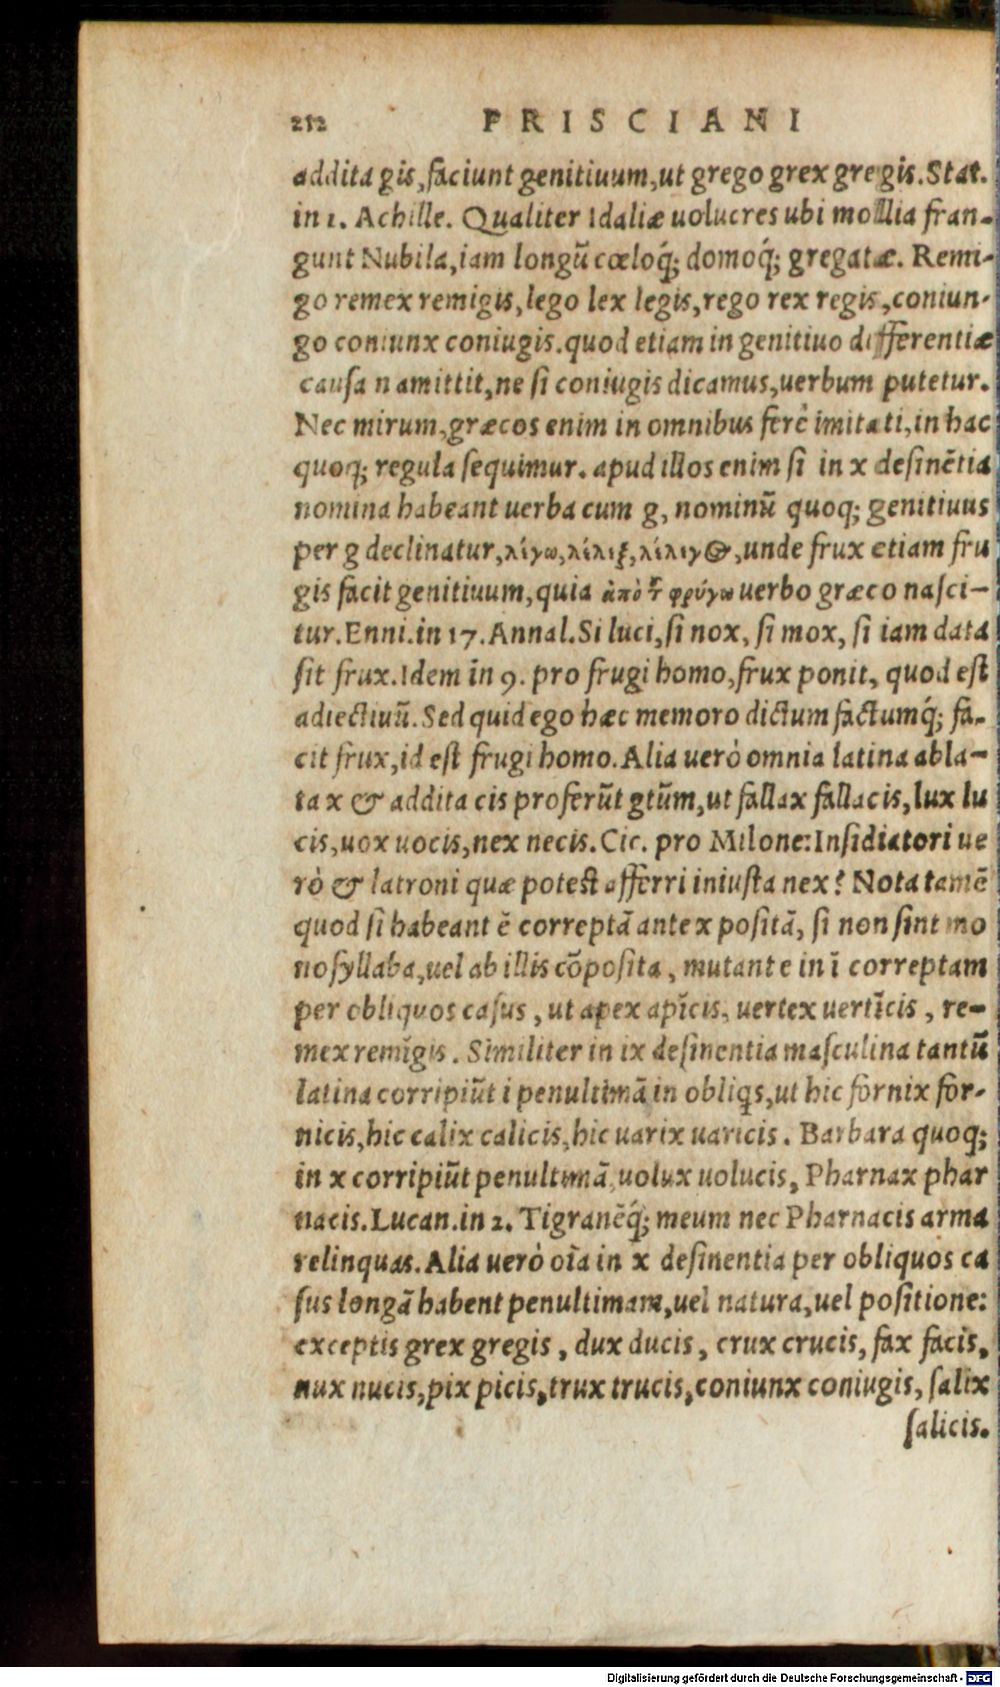 212 PRISCIANI
addita gis, faciunt genitiuum, ut grego grex gregis. Stat.
in 1. Achille. Qualiter Idaliæ uolucres ubi mollia fran-
gunt Nubila, iam longũ cœloq́; domoq́; gregatæ. Remi-
go remex remigis, lego lex legis, rego rex regis, coniun-
go coniunx coniugis. quod etiam in genitiuo differentiæ
causa n amittit, ne si coniugis dicamus, uerbum putetur.
Nec mirum, græcos enim in omnibus ferè imitati, in hac
quoq; regula sequimur. apud illos enim si in x desinẽtia
nomina habeant uerba cum g, nominũ quoq; genitiuus
per g declinatur, λέγω, λέλεξ, λέλεγ@, unde frux etiam fru
gis facit genitiuum, quia ἀπὸ τ͂ φρύγω uerbo græco nasci-
tur. Enni. in 17. Annal. Si luci, si nox, si mox, si iam data
sit frux. Idem in 9. pro frugi homo, frux ponit, quod est
adiectiuũ. Sed quid ego hæc memoro dictum factumq́; fa-
cit frux, id est frugi homo. Alia uerò omnia latina abla-
ta x & addita cis proferũt gtũm, ut fallax fallacis, lux lu
cis, uox uocis, nex necis. Cic. pro Milone: Insidiatori ue
rò & latroni quæ potest afferri iniusta nex? Nota tamẽ
quod si habeant ĕ correptã ante x positã, si non sint mo
nosyllaba, uel ab illis cõposita, mutant e in ĭ correptam
per obliquos casus, ut apex apĭcis, uertex uertĭcis, re-
mex remĭgis. Similiter in ix desinentia masculina tantũ
latina corripiũt i penultimã in obliqs, ut hic fornix for-
nicis, hic calix calicis, hic uarix uaricis. Barbara quoq;
in x corripiũt penultimã, uolux uolucis, Pharnax phar
nacis. Lucan. in 2. Tigranẽq́; meum nec Pharnacis arma
relinquas. Alia uerò oĩa in x desinentia per obliquos ca
sus longã habent penultimam, uel natura, uel positione:
exceptis grex gregis, dux ducis, crux crucis, fax facis,
nux nucis, pix picis, trux trucis, coniunx coniugis, salix
salicis.
Digitalisierung gefördert durch die Deutsche Forschungsgemeinschaft - DFG